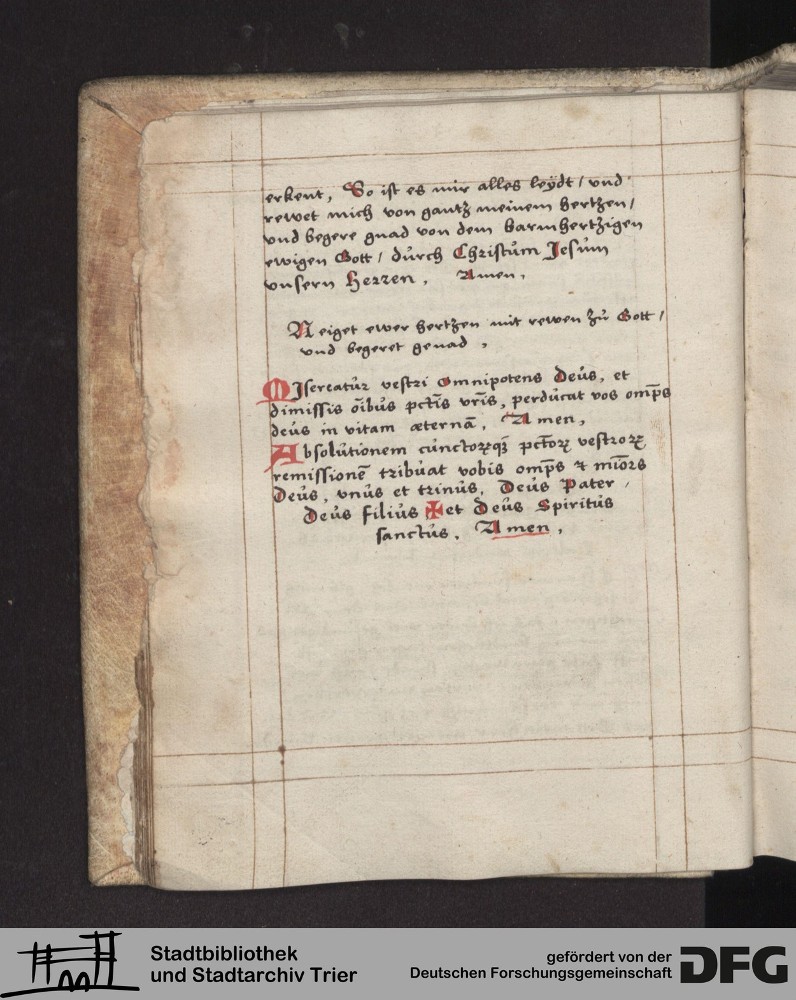 erkent, So ist es mir alles leÿdt / vnd
rewet mich von gantz meinem hertzen /
vnd begere gnad von dem barmhertzigen
ewigen Gott / důrch Christům Jesům
vnsern Herren. Amen.
Neiget ewer hertzen mit rewen zů Gott /
vnd begeret genad.
MJsereatůr vestri omnipotens Deůs, et
dimissis oı̄bůs pctı̄s vrı̄s, perdůcat vos omp̄s
deůs in vitam æternā. Amen.
Absolůtionem cůnctoꝝqꝫ pctōꝝ vestroꝝ,
remissionē tribůat vobis omp̄s ⁊ mīōrs
Deůs, vnůs et trinůs. Deůs Pater /
Deůs filiůs ✠ et Deůs Spiritůs
sanctůs. Amen.
Stadtbibliothek
und Stadtarchiv Trier
gefördert von der
Deutschen Forschungsgemeinschaft
DFG